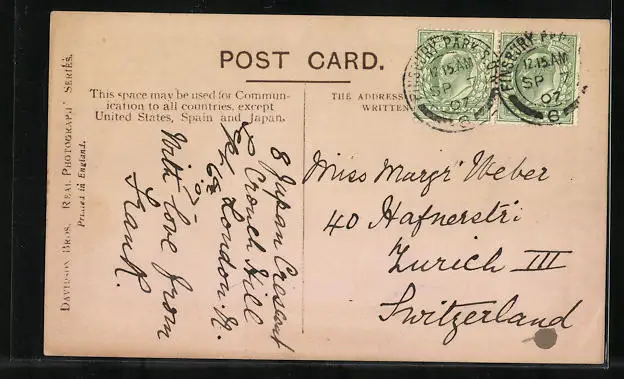 POST CARD.
This space may be used for Commun-
ication to all countries, except
United States, Spain and Japan.
THE ADDRESS
WRITTEN
FINSBURY PARK S.O.
12.15 AM
SP 7
07
6
FINSBURY PARK
12.15 AM
SP 7
07
6
8 Japan Crescent
Crouch Hill
London. N.
With love from
Frank.
Miss Margr Weber
40 Hafnerstr:
Zurich III
Switzerland
DAVIDSON BROS. REAL PHOTOGRAPH SERIES.
Printed in England.